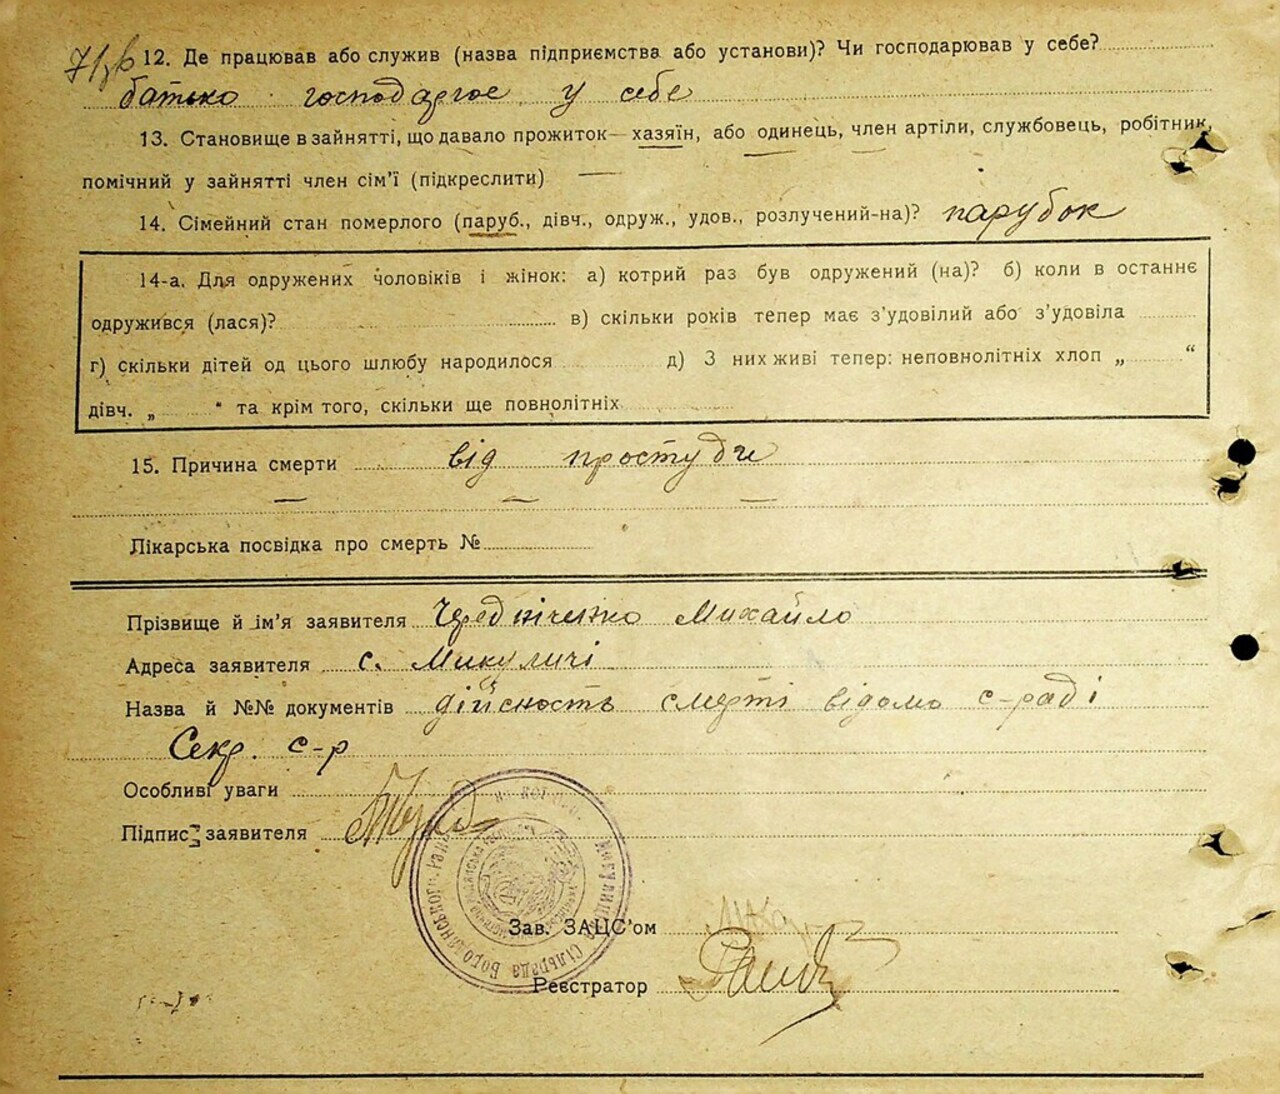 12. Де працював або служив (назва підприємства або установи)? Чи господарював у себе?
батько господарює у себе
13. Становище в зайнятті, що давало прожиток — хазяїн, або одинець, член артіли, службовець, робітник,
помічний у зайнятті член сім'ї (підкреслити) —
14. Сімейний стан померлого (паруб., дівч., одруж., удов., розлучений-на)? парубок
14-а. Для одружених чоловіків і жінок: а) котрий раз був одружений (на)? б) коли в останнє
одружився (лася)? в) скільки років тепер має з'удовілий або з'удовіла
г) скільки дітей од цього шлюбу народилося д) З них живі тепер: неповнолітніх хлоп „ “
дівч. „ “ та крім того, скільки ще повнолітніх
15. Причина смерти від простуди
— — —
Лікарська посвідка про смерть №
Прізвище й ім'я заявителя Чередніченко Михайло
Адреса заявителя с. Микуличі
Назва й №№ документів дійсность смерті відомо с-раді
Секр. с-р
Особливі уваги
Підпис заявителя
Микулицька Сільрада Бородянського Рай
Зав. ЗАЦС'ом
Реєстратор